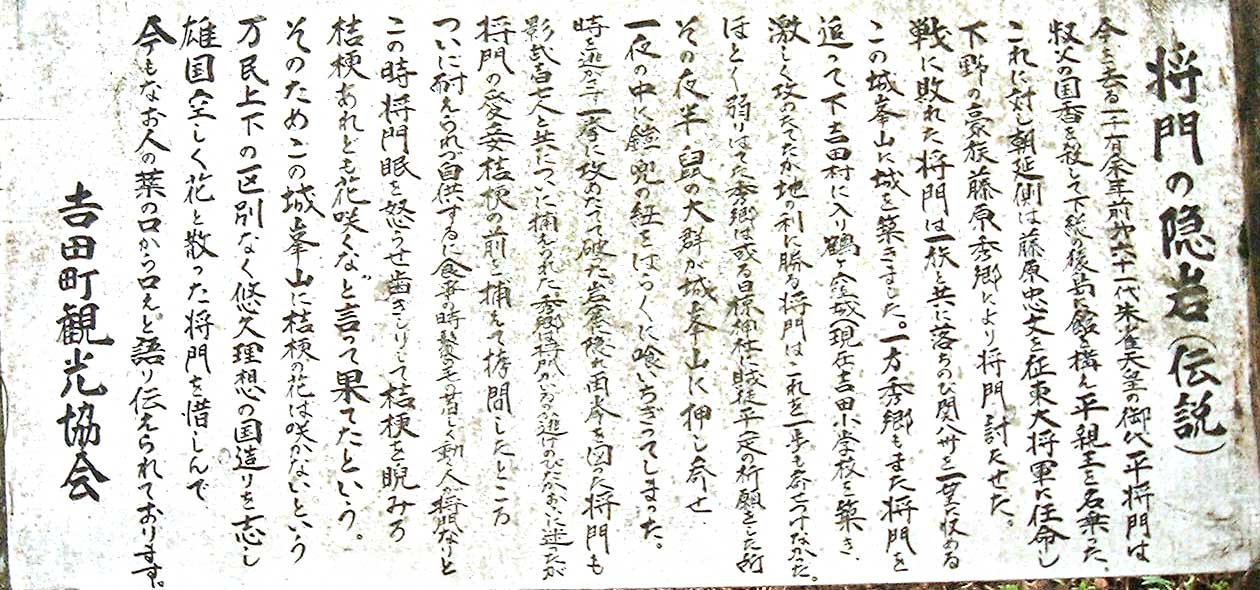 将門の隠岩(伝説)
今を去る一千有余年前第六十一代朱雀天皇の御代平将門は
叔父の国香を殺して下総の後島に館を構え平親王と名乗った、
これに対し朝廷側は藤原忠文を征東大将軍に任命し
下野の豪族藤原秀郷により将門討たせた。
戦に敗れた将門は一族と共に落ちのび関八州を一望に収める
この城峯山に城を築きました。一方秀郷もまた将門を
追って下吉田村に入り鶴ヶ窪城現在吉田小学校を築き、
激しく攻めたてたが地の利に勝る将門はこれを一歩も寄せつけなかった。
ほとく弱りはてた秀郷は或る日椋神社に賊徒平定の祈願をした所
その夜半鼠の大群が城峯山に押し寄せ
一夜の中に鎧兜の紐をばらくに喰いちぎってしまった。
時を逃がさず一挙に攻めたてて破った。岩裏に隠れ再挙を図った将門も
影武者七人と共についに捕えられた秀郷は
将門の愛妾桔梗の前を捕えて拷問したところ
ついに耐えられづ自供するに食事の時鬢毛の甘しく動く人将門なりと
この時将門眼を怒らせ歯ぎしりして桔梗を睨みろ
桔梗あれども花咲くな〟と言って果てたという。
そのためこの城峯山に桔梗の花は咲かないという
万民上下の区別なく悠久理想の国造りを志し
雄国空しく花と散った将門を惜しんで
今もなお人の葉の口から口えと語り伝えられております。
吉田町観光協会